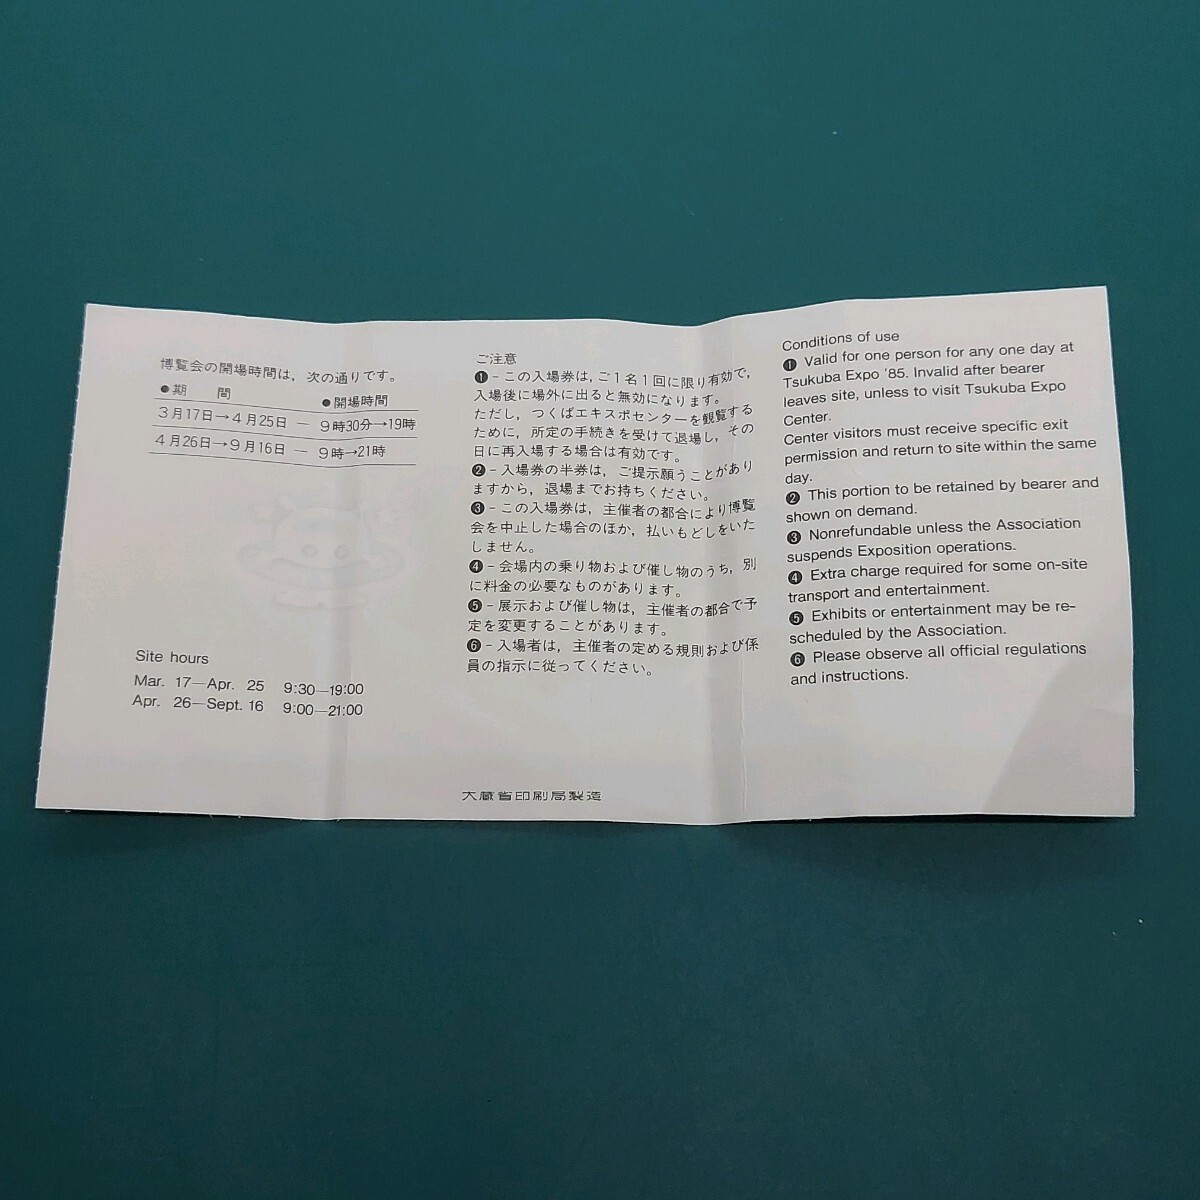 博覧会の開場時間は，次の通りです。
●期　間　●開場時間
3月17日→4月25日 ― 9時30分→19時
4月26日→9月16日 ― 9時→21時
Site hours
Mar. 17—Apr. 25 9:30—19:00
Apr. 26—Sept. 16 9:00—21:00
ご注意
❶－この入場券は，ご1名1回に限り有効で，
入場後に場外に出ると無効になります。
ただし，つくばエキスポセンターを観覧する
ために，所定の手続きを受けて退場し，その
日に再入場する場合は有効です。
❷－入場券の半券は，ご提示願うことがあり
ますから，退場までお持ちください。
❸－この入場券は，主催者の都合により博覧
会を中止した場合のほか，払いもどしをいた
しません。
❹－会場内の乗り物および催し物のうち，別
に料金の必要なものがあります。
❺－展示および催し物は，主催者の都合で予
定を変更することがあります。
❻－入場者は，主催者の定める規則および係
員の指示に従ってください。
大蔵省印刷局製造
Conditions of use
❶ Valid for one person for any one day at
Tsukuba Expo '85. Invalid after bearer
leaves site, unless to visit Tsukuba Expo
Center.
Center visitors must receive specific exit
permission and return to site within the same
day.
❷ This portion to be retained by bearer and
shown on demand.
❸ Nonrefundable unless the Association
suspends Exposition operations.
❹ Extra charge required for some on-site
transport and entertainment.
❺ Exhibits or entertainment may be re-
scheduled by the Association.
❻ Please observe all official regulations
and instructions.